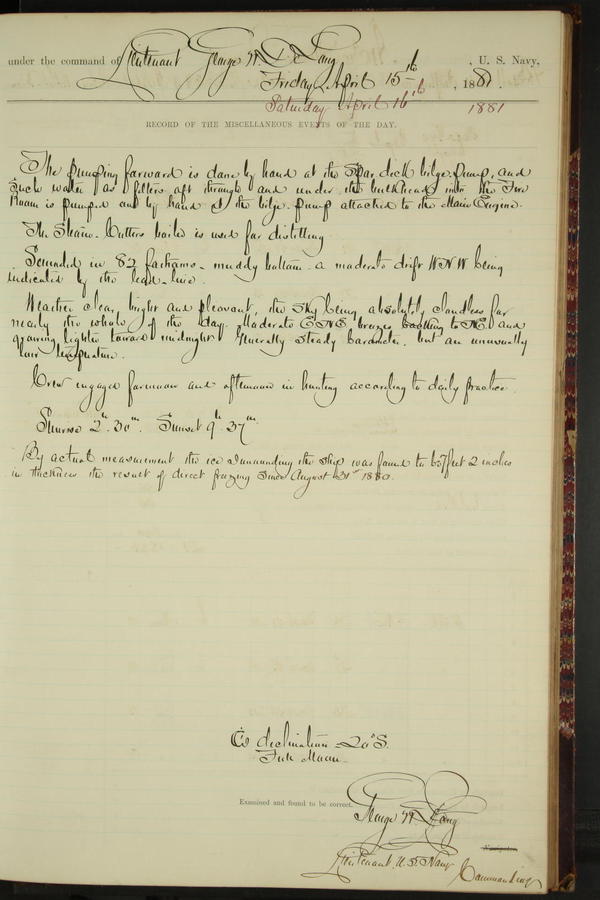 under the command of Lieutenant George W. De Long, U. S. Navy,
Friday April 15th, 1881.
Saturday April 16th 1881
RECORD OF THE MISCELLANEOUS EVENTS OF THE DAY.
The pumping forward is done by hand at the Spar deck bilge pump, and
such water as filters aft through and under the bulkhead into the Fire
Room is pumped out by hand at the bilge-pump attached to the Main Engine.
The Steam-Cutters boiler is used for distilling
Sounded in 82 fathoms - muddy bottom - a moderate drift WNW being
indicated by the lead-line.
Weather clear, bright and pleasant, the sky being absolutely cloudless for
nearly the whole of the day. Moderate ENE breezes backing to NE. and
growing lighter toward midnight. Generally steady barometer. but an unusually
low temperature.
Crew engaged forenoon and afternoon in hunting according to daily practice.
Sunrise 2h. 30m. Sunset 9h. 37m.
By actual measurement the ice surrounding the ship was found to be feet 2 inches
in thickness the result of direct freezing since August 31st 1880.
declination S.
Full Moon.
Examined and found to be correct.
George W. De Long
Navigator.
Lieutenant U.S. Navy Commanding